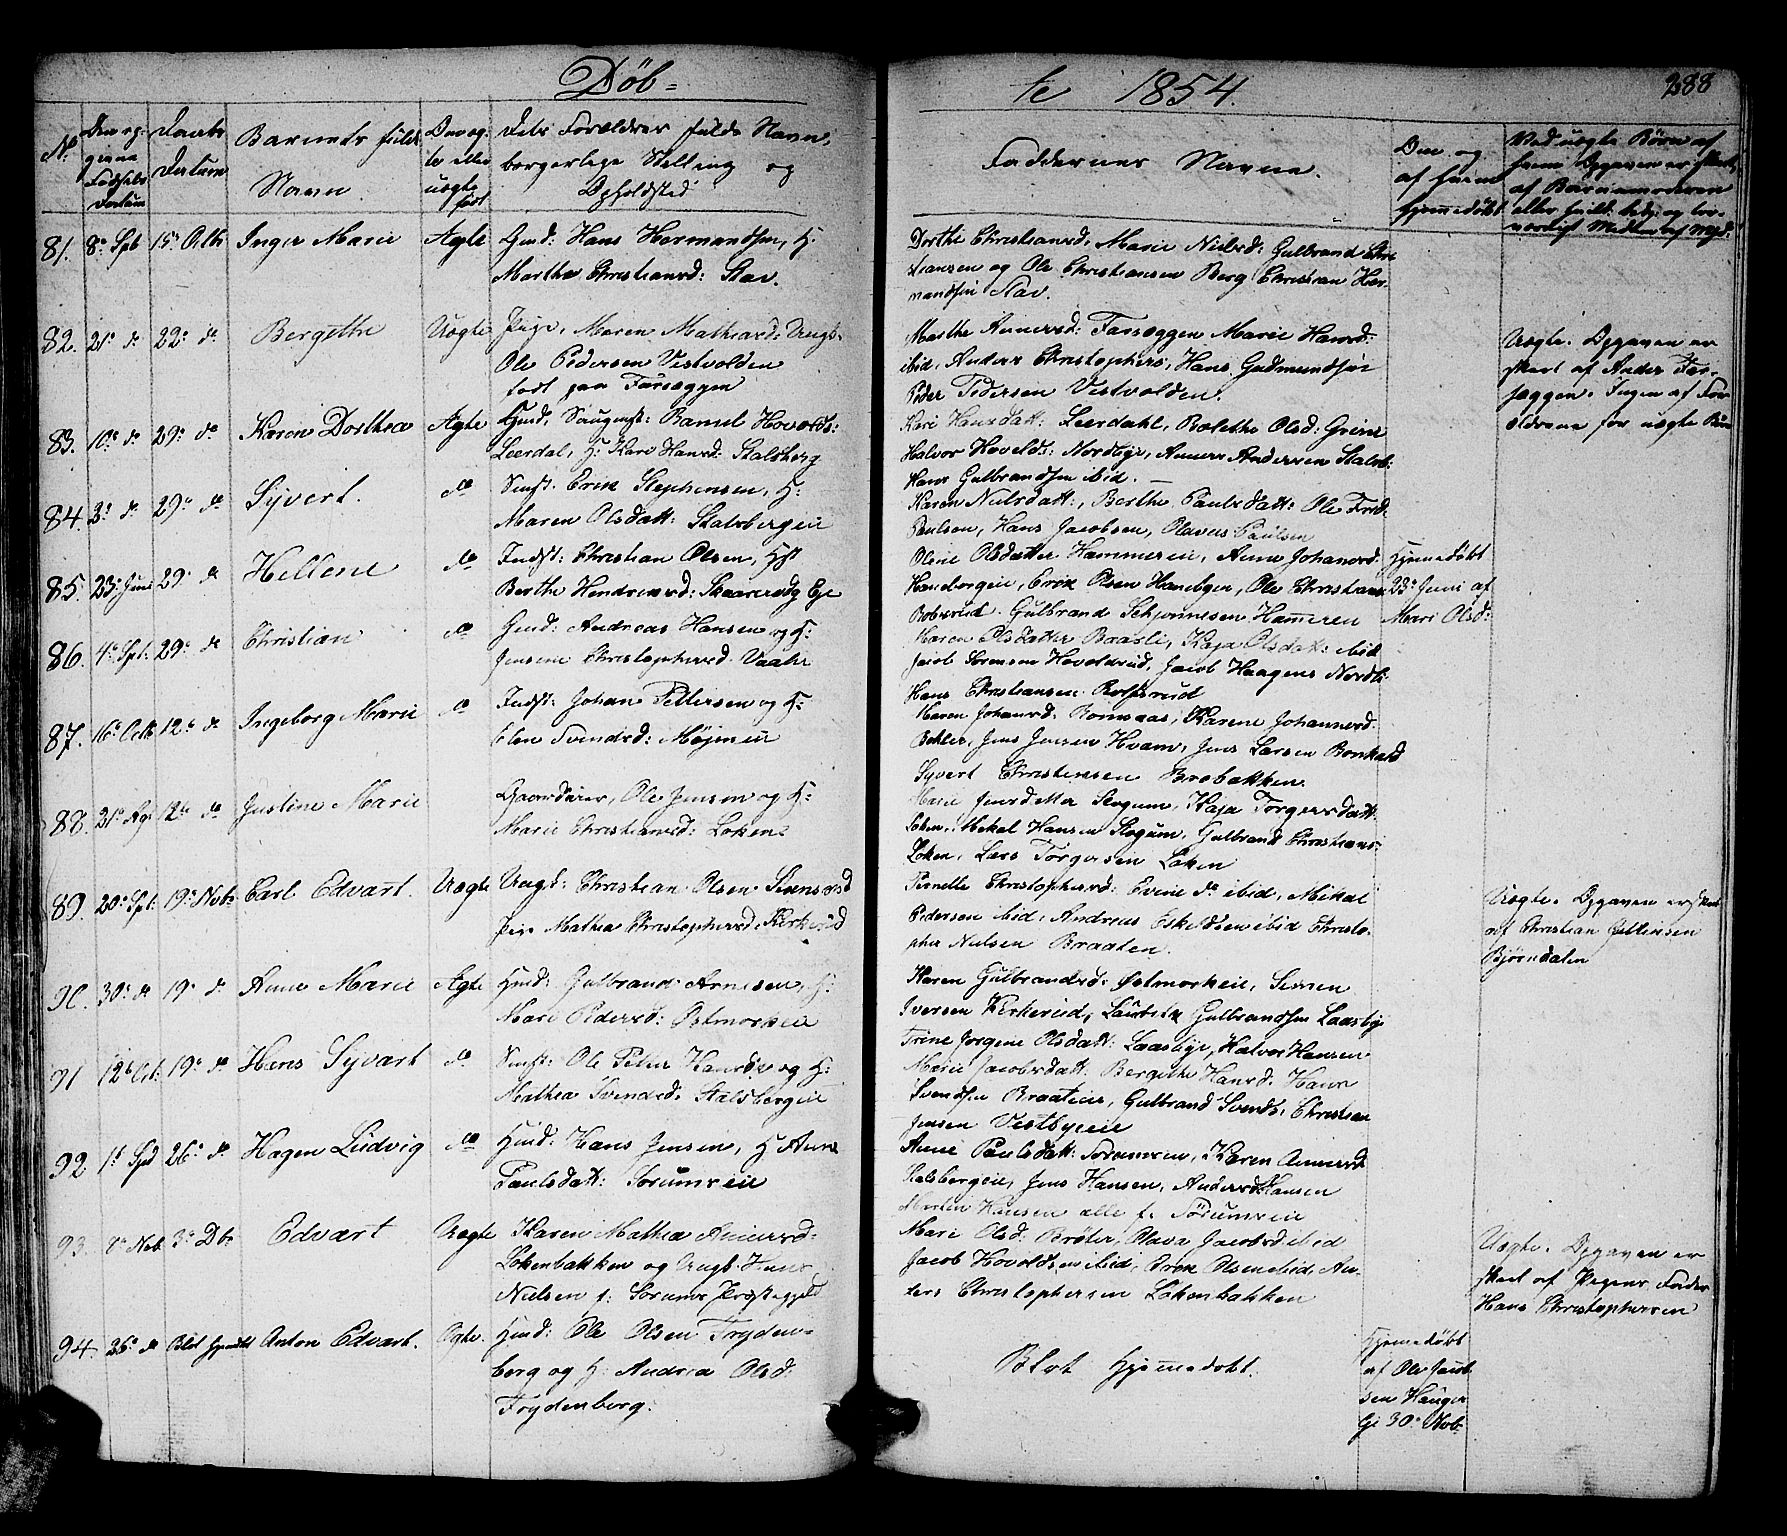 Døb=
te 1854.
288
No
Den op-
givne
Fødsels
Datum
Daabs
Datum
Barnets fulde
Navn
Om æg-
te eller
uægte
født
Dets Forældres fulde Navn,
borgerlige Stilling og
Opholdsted
Faddernes Navne.
Om og
af hvem
hjemmedøbt
Ved uægte Børn af
hvem Opgaven er skeet,
af Barnemoderen
81. 8de Sptb 15de Octb Inger Marie Ægte Gmd: Hans Hermandsen, H:
Marthe Christiansd: Stav.
Dorthe Christiansd, Marie Nielsd: Gulbrand Chri
stiansen og Ole Christiansen Berg Christian Her-
mandsen Stav.
82. 21de do 22de do Bergethe Uægte Pige, Maren Mathiasd: Ungk:
Ole Pedersen Vestvolden
født paa Farseggen
Marthe Annersd: Farseggen Marie Hansd:
ibid, Anders Christophers, Hans Gudmundsen
Peder Pedersen Vestvolden.
Uægte. Opgaven er
skeet af Anders Far-
seggen. Ingen af For-
ældrene før uægte Børn
83. 10de do 29de do Karen Dorthea Ægte Hmd, Saugmst: Hovelds:
Leerdal, H: Kari Hansd: Stalsberg
Kari Hansdatt: Leerdahl, Bolethe Olsd: Grine
Halvor Hovelds: Nordbye, Anners Andersen Stalsb:
Hans Gulbrandsen ibid. —
84. 3de do 29de do Syvert. do Smst. Erik Stephensen, H:
Maren Olsdatt: Stalsbergeie
Karen Nielsdatt:, Berthe Paulsdatt: Ole Fred.
Paulsen, Hans Jacobsen, Olavus Paulsen
85. 23de Juni 29de do Hellene do Indst: Christian Olsen, Hst
Berthe Hendriksd: Eje
Oline Olsdatter Hammeren, Anne Johansd:
Haneborgeie, Erik Olsen Hanebyen, Ole Christians
Robsrud. Gulbrand Hameren
Hjemmedøbt
23de Juni af
Mari Olsd:
86. 4de Spt: 29de do Christian do Gmd: Andreas Hansen og H:
Jensine Christophersd. Vaaler
Karen Olsdatter Braali, Kaja Olsdatt: ibid
Jacob Sørensen Hovelsrud, Jacob Haagens Nordli
Hans Christiansen Rolfsrud
87. 16de Octb 12de do Ingeborg Marie do Indst: Johan Pettersen og H:
Elen Svendsd: Møjmeie
Karen Johansd. Bonsaas, Karene Johannesd.
Bøhler, Jens Jensen Hvam, Jens Larsen Bonkald
Syvert Christensen Brobakken
88. 21de Ag: 12de do Justine Marie Gaardbruger, Ole Jensen og H:
Marie Christiansd: Løken
Marie Jensdatter Slogum, Kaja Torgersdatt.
Løken, Mikal Hansen Slogum, Gulbrand Christians:
Løken, Lars Torgersen Løken
89. 20de Spt: 19de Novb: Carl Edvart. Uægte Ungk: Christian Olsen
Pige Mathea Christophersd. Kerkerud
Pernelle Christophersd: Evine do ibid, Mikal
Pedersen ibid, Andreas Eskeldsen ibid Christo-
pher Nielsen Braaten.
Uægte. Opgaven er skeet
af Christian Gullensen
Bjørndalen
90. 30de do 19de do Anne Marie Ægte Hmd: Gulbrand Arnesen, H:
Mari Pedersd: Østmorkeie
Karen Gulbrandsd: Østmorkeie, Simen
Iversen Kerkerud, Gulbrandsen Laasby
Trine Jørgine Olsdatt: Laasbye, Halvor Hansen
91 12de Oct: 19de do Hans Syvart do Smst: Ole Peter Hansen og H:
Mathea Svendsd: Stalsbergeie
Marie Jacobsdatt: Bergethe Hansd: Hans
Svendsen Braateeie, Gulbrand Svends: Christian
Jensen Vestbyeeie
92 1de Spt 26de do Hagen Ludvig do Hmd: Hans Jensen, H Anne
Paulsdatt: Sørumseie
Anne Paulsdatt: Sørumseie, Karen Annersd
Stalsbergeie, Jens Hansen, Anders Hansen
Martin Hansen alle f. Sørumseie
93. 8de Nov 3de Db: Edvart Uægte Karen Mathea Annersd:
Løkenbakken og Ungk. Hans
Nielsen f. Sørums Præstegjeld
Mari Olsd. Brøter, Olava Jacobsd ibid
Jacob Hovoldsen ibid, Erik Olsen ibid, An-
ders Christophersen Løkenbakken
Uægte. Opgaven er
skeet af Pigens Fader
Hans Christophersen
94. 26de do Blot hjemdbt Anton Edvart. Ægte. Hmd: Ole Olsen Fryden-
berg og H: Andrea Olsd:
Frydenberg.
Blot Hjemmedøbt.
Hjemmedøbt
af Ole Jacob
sen Haugen
Ge 30de Nvb: